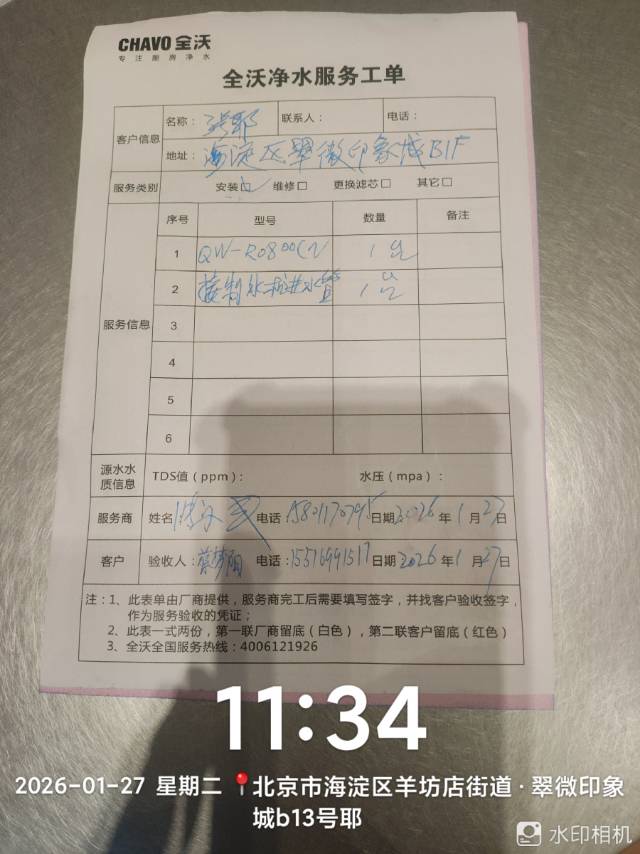 CHAVO 全沃
专注厨房净水
全沃净水服务工单
客户信息
名称： 联系人： 电话：
地址：海淀区翠微印象城B1F
服务类别 安装☑ 维修□ 更换滤芯□ 其它□
服务信息
序号 型号 数量 备注
1 QW-R0800CN 1台
2 水 进水管 1
3
4
5
6
源水水质信息 TDS值（ppm）： 水压（mpa）：
服务商 姓名 电话：15801170795 日期 2026年1月27日
客户 验收人： 电话：15516991517 日期 2026年1月27日
注：1、此表单由厂商提供，服务商完工后需要填写签字，并找客户验收签字，
作为服务验收的凭证；
2、此表一式两份，第一联厂商留底（白色），第二联客户留底（红色）
3、全沃全国服务热线：4006121926
11:34
2026-01-27 星期二 北京市海淀区羊坊店街道·翠微印象
城b13号耶
水印相机